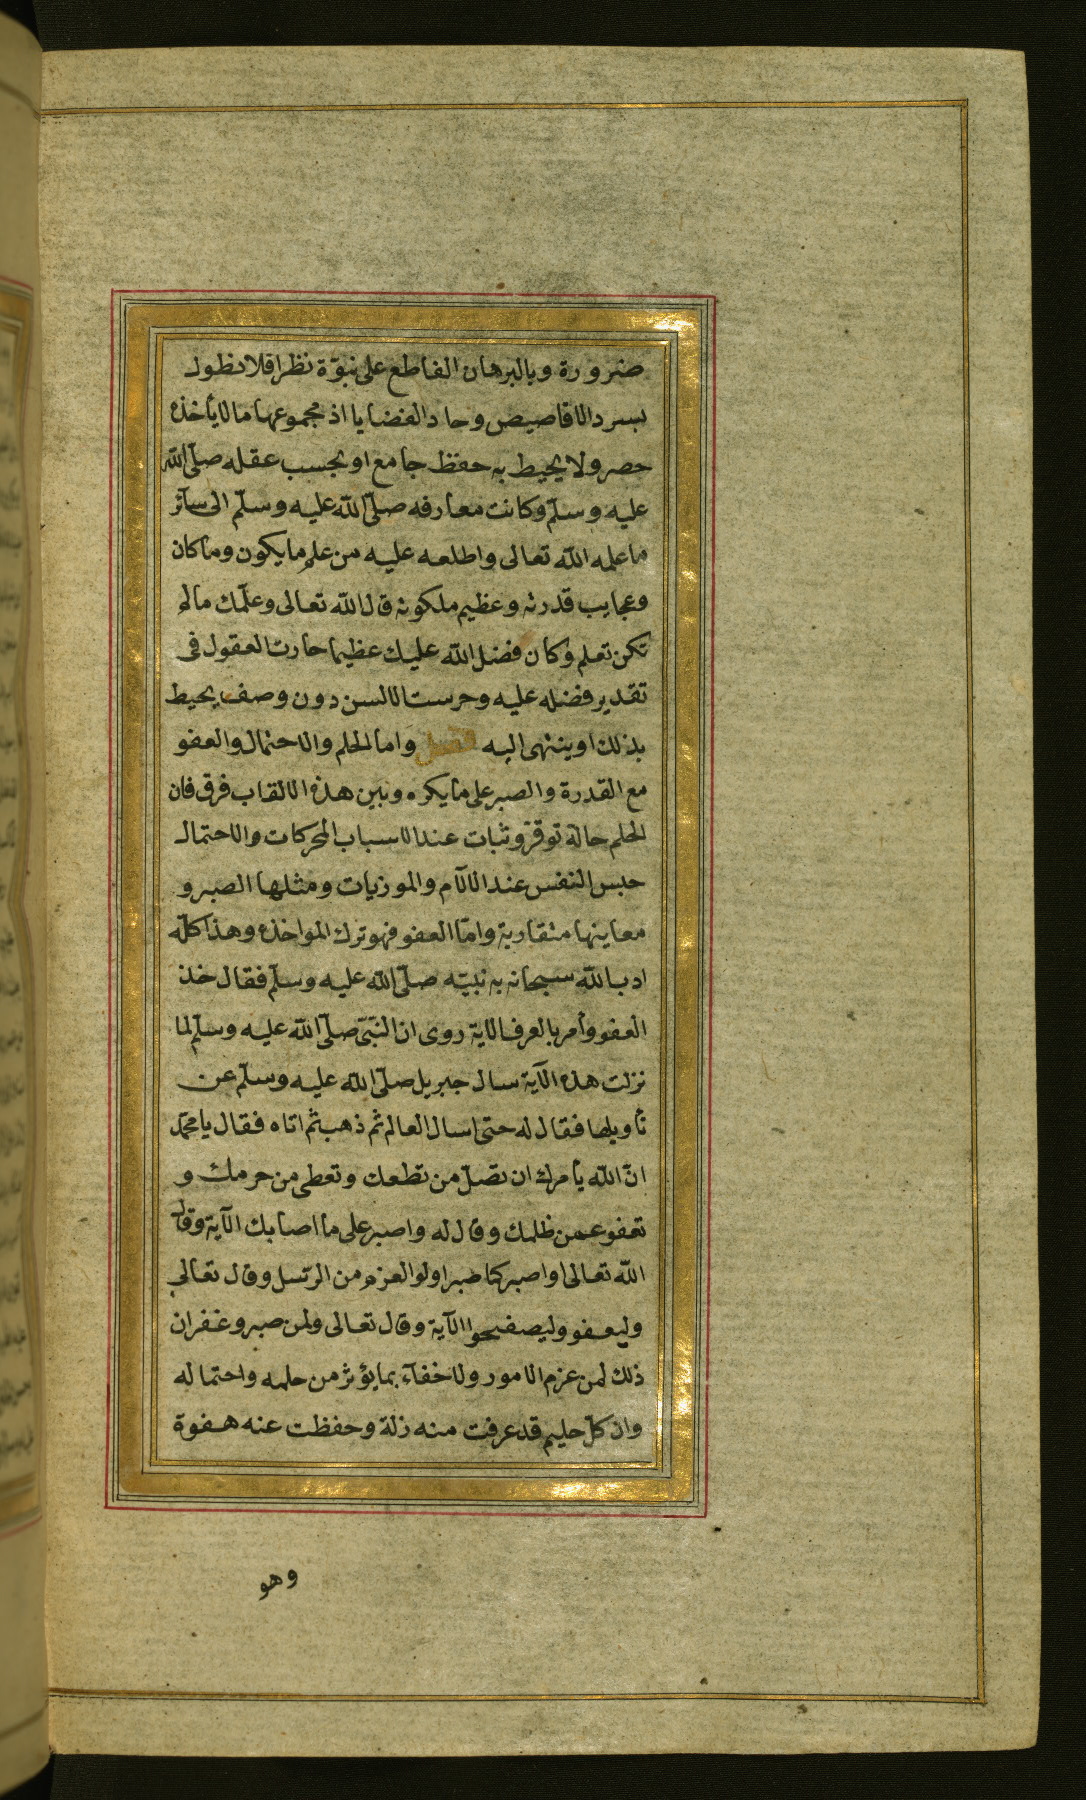 ضرورة وبالبرهان القاطع على نبوّة نظرا فلا نطول
بسرد الاقاصيص وحاد القضايا اذ مجموعها ما لا يأخذه
حصر ولا يحيط به حفظ جامع او بحسب عقله صلّى الله
عليه وسلّم وكانت معارفه صلّى الله عليه وسلّم الى سآئر
ما علمه الله تعالى واطلعه عليه من علم ما يكون وما كان
وعجايب قدرته وعظيم ملكوته قال الله تعالى وعلّمك ما لم
تكن تعلم وكان فضل الله عليك عظيما حارت العقول فى
تقدير فضله عليه وخرست الالسن دون وصف يحيط
بذلك او ينتهى اليه فصل واما الحلم والاحتمال والعفو
مع القدرة والصبر على ما يكره وبين هذه الالقاب فرق فان
الحلم حالة توقر وثبات عند الاسباب المحركات والاحتمال
حبس النفس عند الالآم والموزيات ومثلها الصبر و
معاينها متقاربة وامّا العفو فهو ترك المواخذه وهذا كلّه
ادب الله سبحانه به نبيّه صلّى الله عليه وسلّم فقال خذ
العفو وأمر بالعرف الاية روى ان النّبىّ صلّى الله عليه وسلّم لما
نزلت هذه الآية سال جبريل صلّى الله عليه وسلّم عن
تأويلها فقال له حتى اسال العالم ثم ذهب ثم اتاه فقال يا محمّد
انّ الله يأمرك ان تصل من قطعك وتعطى من حرمك و
تعفو عمن ظلمك وقال له واصبر على ما اصابك الآية وقال
الله تعالى او اصبر كما صبر اولو العزم من الرّسل وقال تعالى
وليعفو وليصفحوا الآية وقال تعالى ولمن صبر وغفر ان
ذلك لمن عزم الامور ولا خفآء بما يؤثر من حلمه واحتماله
وان كلّ حليم قد عرفت منه زلة وحفظت عنه هفوة
وهو